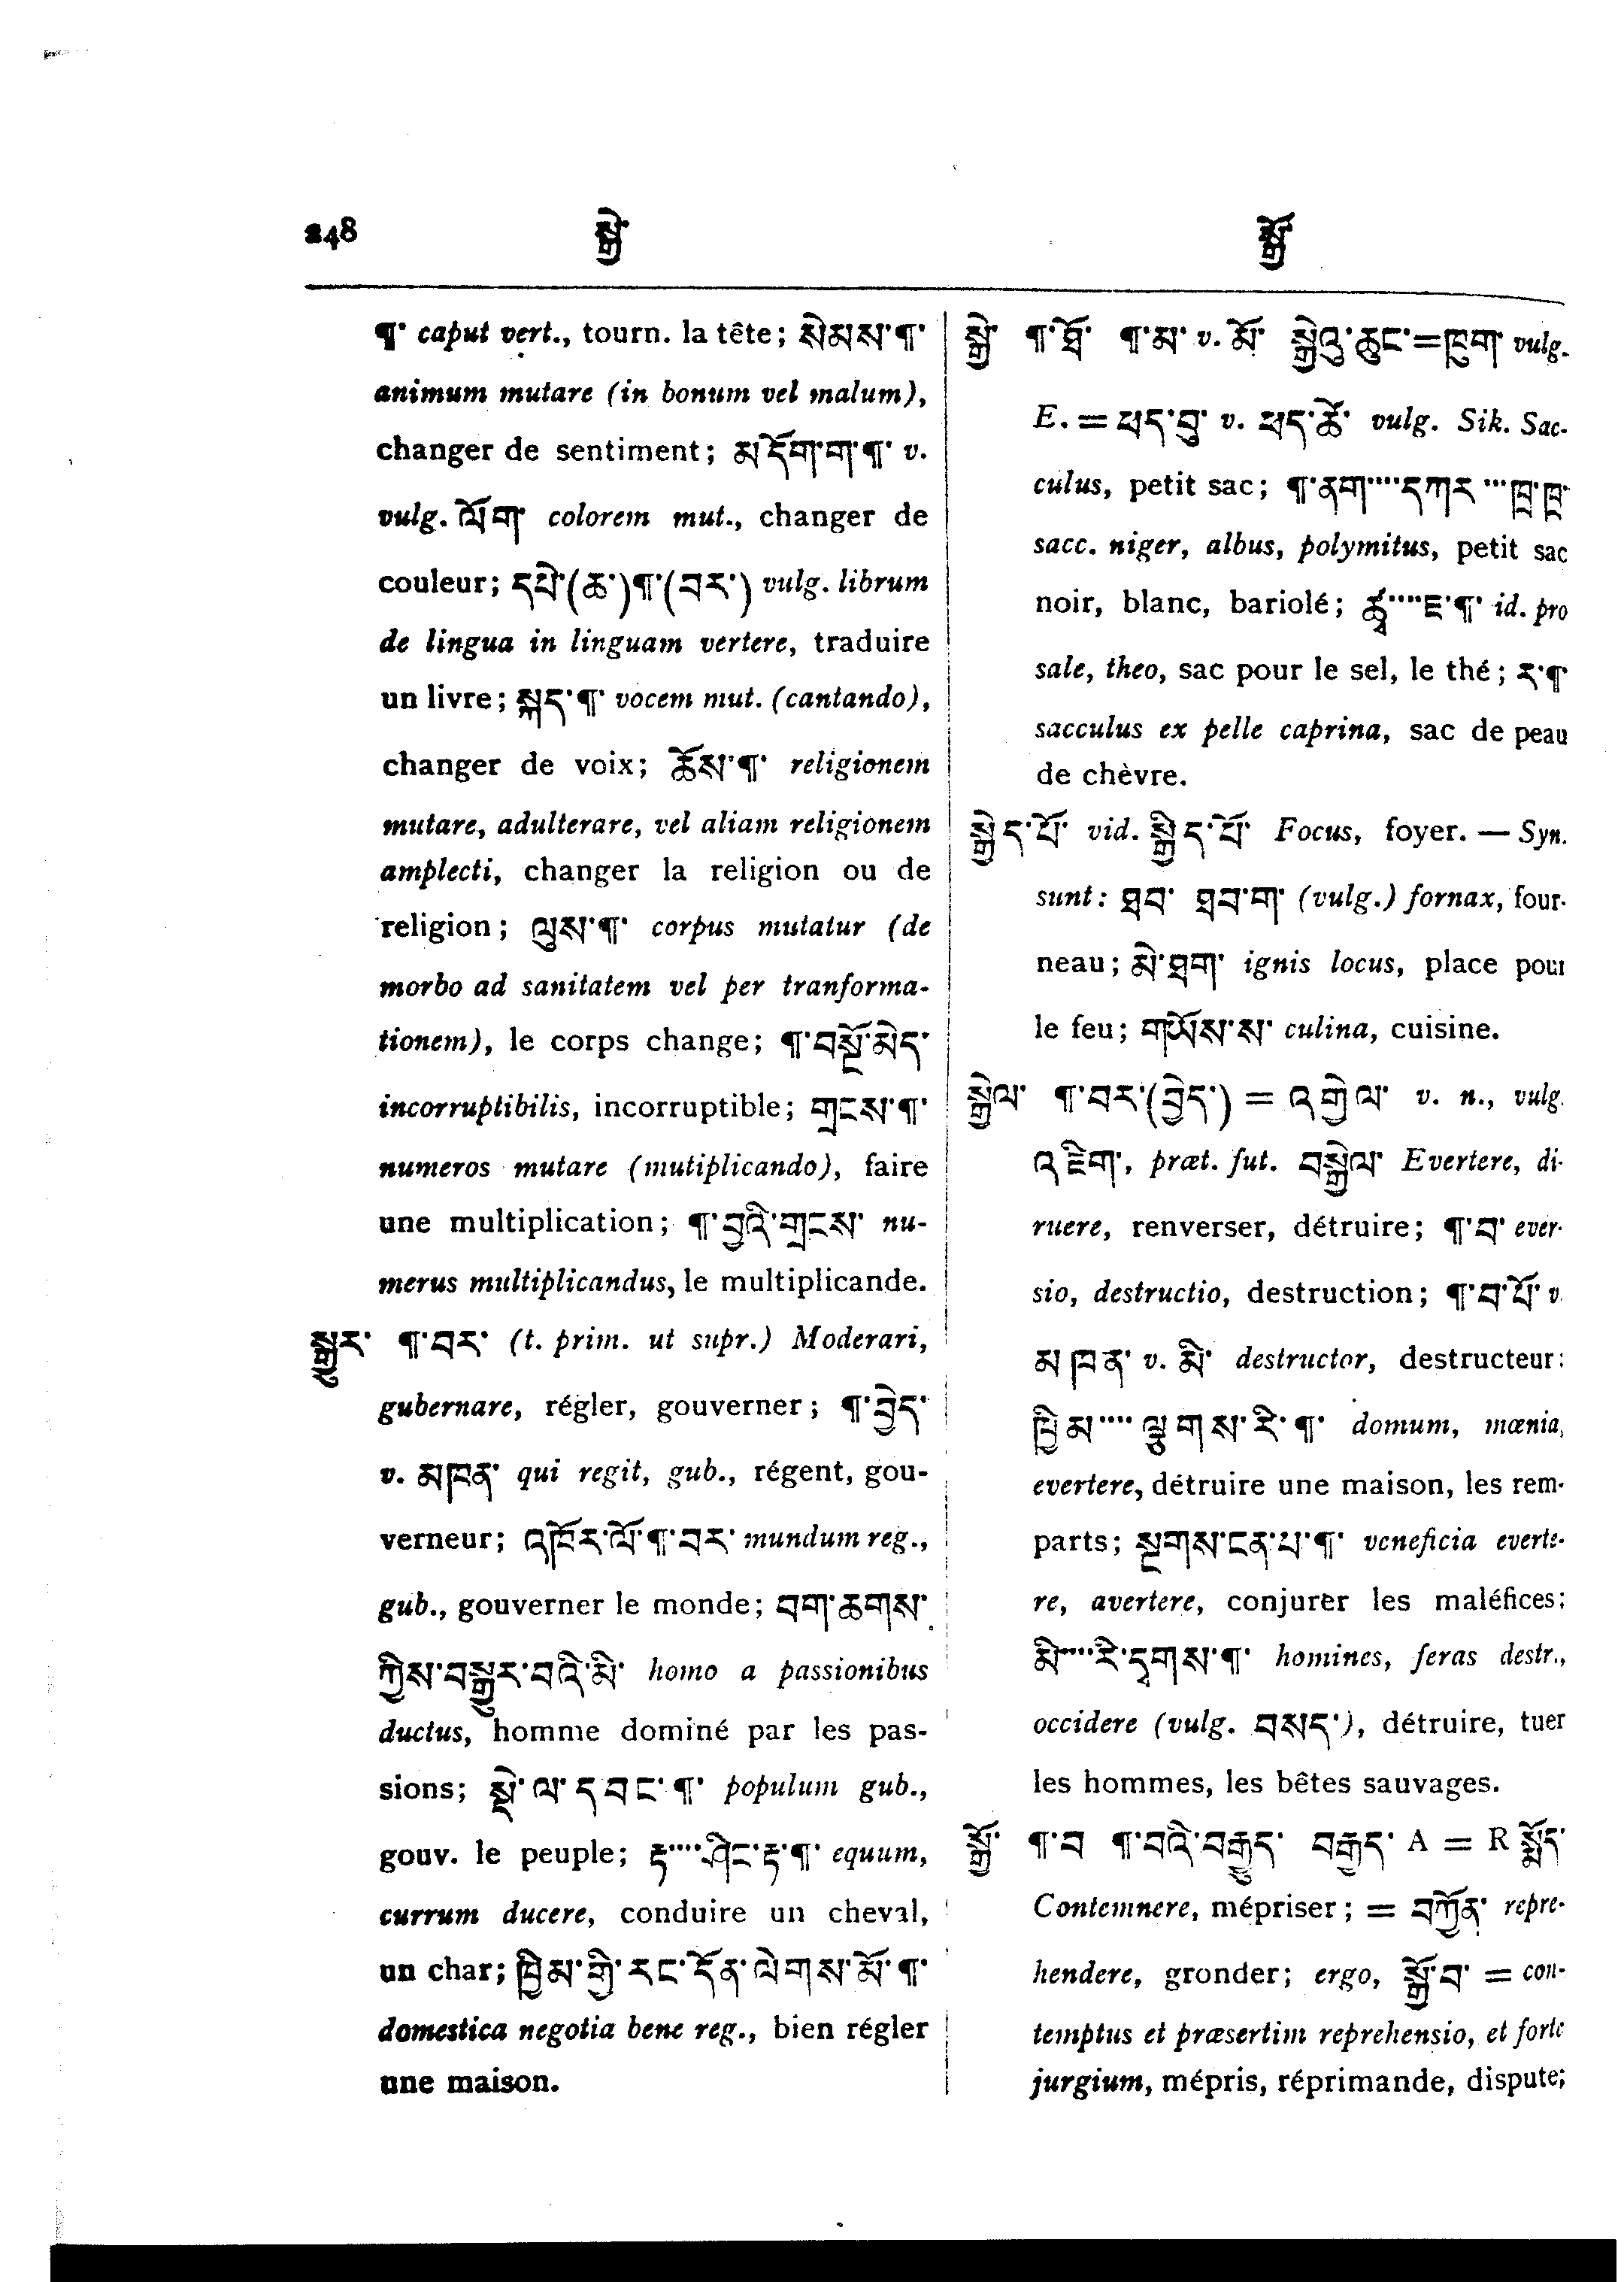 248 སྒྱེ་ སྒྱོ་
¶་ caput vert., tourn. la tête; སེམས་¶་
animum mutare (in bonum vel malum),
changer de sentiment; མདོག་ག་¶་ v.
vulg. ལོག་ colorem mut., changer de
couleur; དཔེ་(ཆ་)¶་(བར་) vulg. librum
de lingua in linguam vertere, traduire
un livre; སྐད་¶་ vocem mut. (cantando),
changer de voix; ཆོས་¶་ religionem
mutare, adulterare, vel aliam religionem
amplecti, changer la religion ou de
religion; ལུས་¶་ corpus mutatur (de
morbo ad sanitatem vel per tranforma-
tionem), le corps change; ¶་བསྔོ་མེད་
incorruptibilis, incorruptible; གྲངས་¶་
numeros mutare (mutiplicando), faire
une multiplication; ¶་བྱའི་གྲངས་ nu-
merus multiplicandus, le multiplicande.
སྒྱུར་ ¶་བར་ (t. prim. ut supr.) Moderari,
gubernare, régler, gouverner; ¶་བྱེད་
v. མཁན་ qui regit, gub., régent, gou-
verneur; འཁོར་ལོ་¶་བར་ mundum reg.,
gub., gouverner le monde; བག་ཆགས་
ཀྱིས་བསྒྱུར་བའི་མི་ homo a passionibus
ductus, homme dominé par les pas-
sions; སྡེ་ལ་དབང་¶་ populum gub.,
gouv. le peuple; རྟ་....ཤིང་རྟ་¶་ equum,
currum ducere, conduire un cheval,
un char; ཁྱིམ་གྱི་རང་དོན་ལེགས་མོ་¶་
domestica negotia bene reg., bien régler
une maison.
སྒྱེ་ ¶་ཐོ་ ¶་མ་ v. མོ་ སྒྱེའུ་ཆུང་=ཁུག་ vulg.
E. = ཕད་བུ་ v. ཕད་ཚོ་ vulg. Sik. Sac-
culus, petit sac; ¶་ནག་....དཀར་...ཁྲ་ཁྲ་
sacc. niger, albus, polymitus, petit sac
noir, blanc, bariolé; ཚྭ་....ཇ་¶་ id. pro
sale, theo, sac pour le sel, le thé; ར་¶་
sacculus ex pelle caprina, sac de peau
de chèvre.
སྒྱེད་པོ་ vid. སྒྱིད་པོ་ Focus, foyer. — Syn.
sunt: ཐབ་ ཐབ་ག་ (vulg.) fornax, four-
neau; མེ་ཐག་ ignis locus, place pour
le feu; གཡོས་ས་ culina, cuisine.
སྒྱེལ་ ¶་བར་(བྱེད་) = འགྱེལ་ v. n., vulg.
འཇིག་, præt. fut. བསྒྱེལ་ Evertere, di-
ruere, renverser, détruire; ¶་བ་ ever-
sio, destructio, destruction; ¶་བ་པོ་ v.
མཁན་ v. མི་ destructor, destructeur:
ཁྱིམ་....ལྕགས་རི་¶་ domum, mœnia,
evertere, détruire une maison, les rem-
parts; སྔགས་ངན་པ་¶་ veneficia everte-
re, avertere, conjurer les maléfices;
མི་....རི་དྭགས་¶་ homines, feras destr.,
occidere (vulg. བསད་), détruire, tuer
les hommes, les bêtes sauvages.
སྒྱོ་ ¶་བ ¶་བའི་བརྒྱུད་ བརྒྱད་ A = R སྨོད་
Contemnere, mépriser; = བཀྱོན་ repre-
hendere, gronder; ergo, སྒྱོ་བ་ = con-
temptus et præsertim reprehensio, et forte
jurgium, mépris, réprimande, dispute;